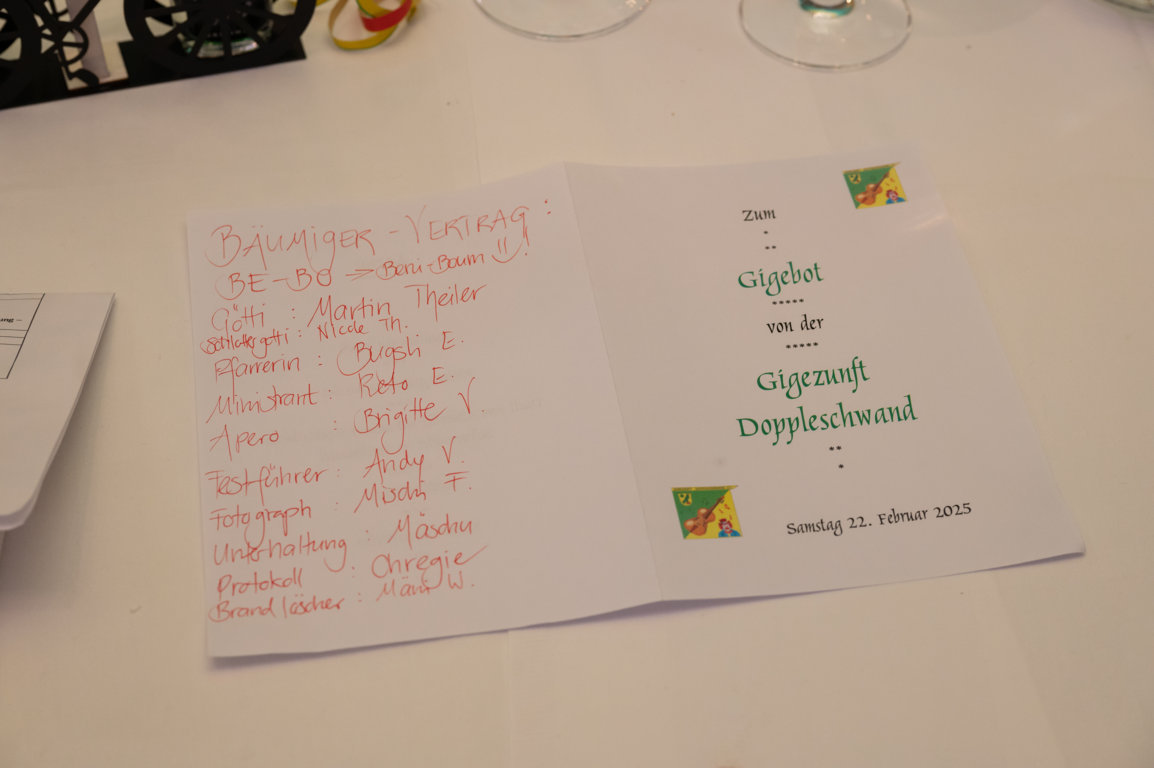 BÄUMIGER - VERTRAG :
BE-BO -> Beni-Boum !
Götti : Martin Theiler
Schlottergotti : Nicole Th.
Pfarrerin : Bugsli E.
Ministrant : Reto E.
Apero : Brigitte V.
Festführer : Andy V.
Fotograph : Mischi F.
Unterhaltung : Mäschu
Protokoll : Chregie
Brandlöscher : Mänu W.
Zum
*
**
Gigebot
*****
von der
*****
Gigezunft
Doppleschwand
**
*
Samstag 22. Februar 2025